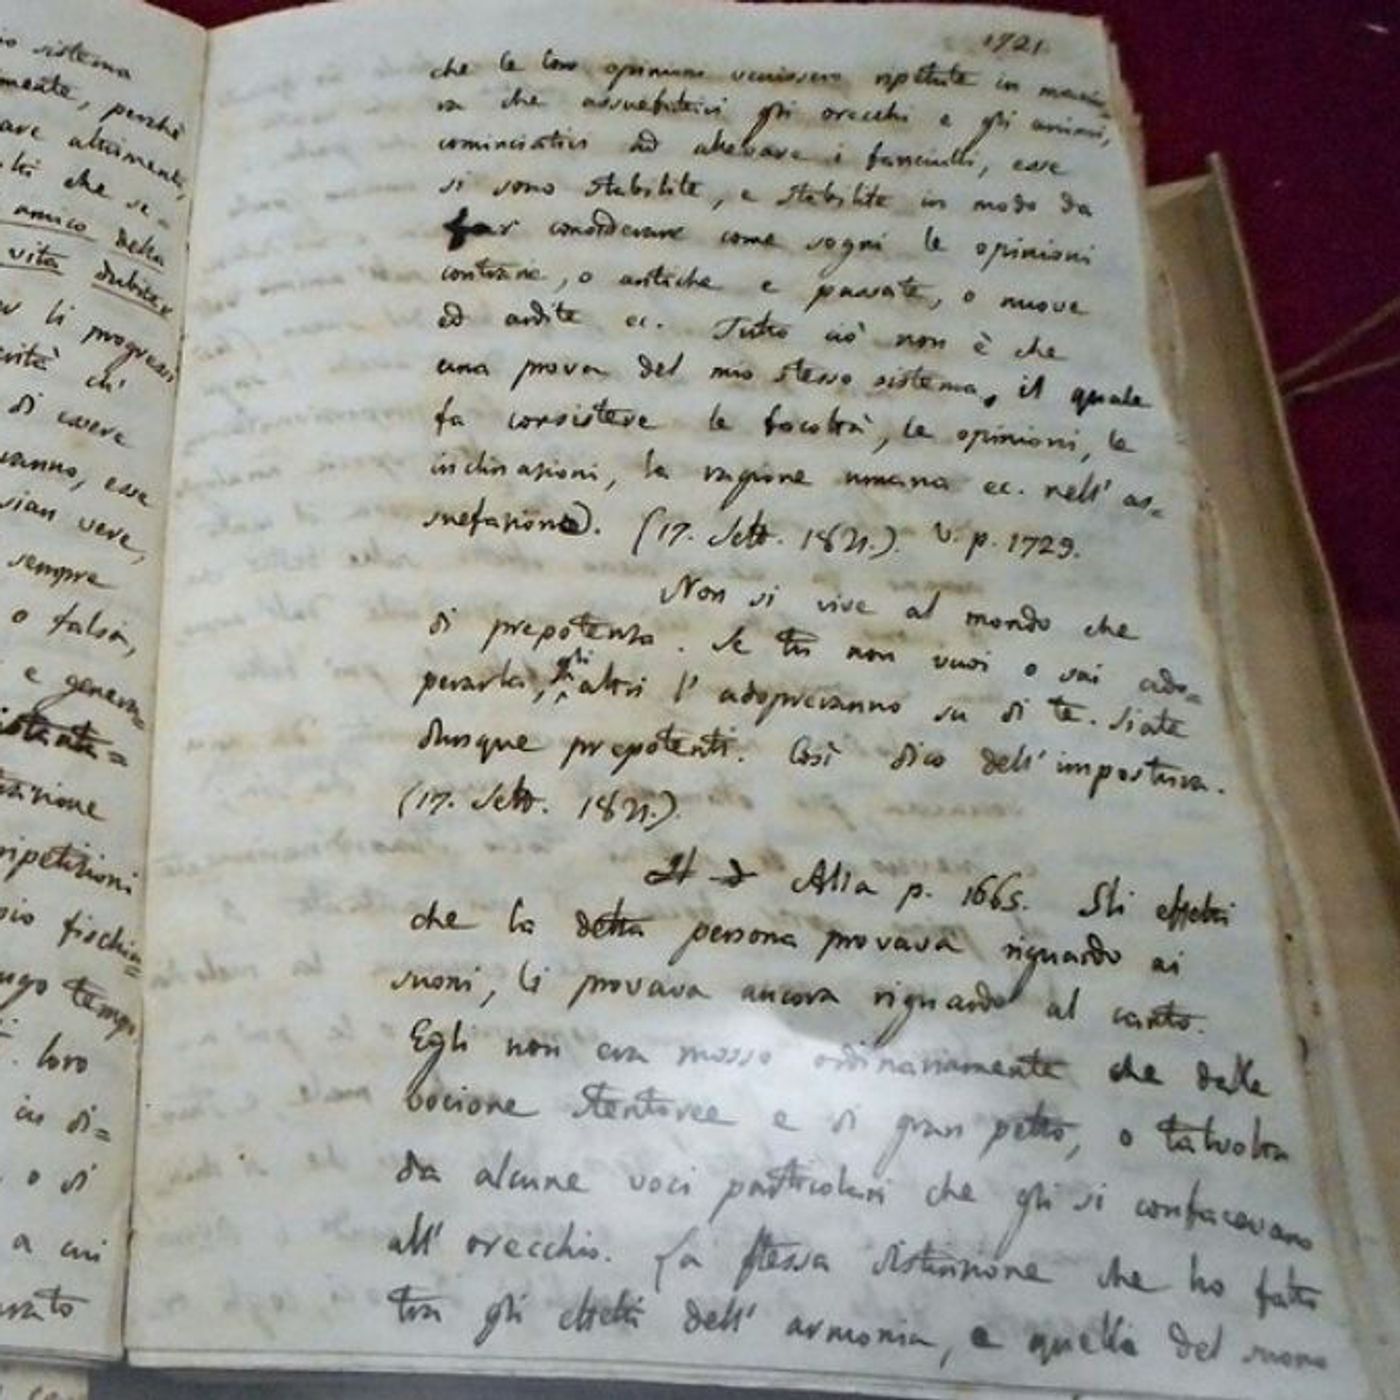 io sistema
mente, perchè
are altrimenti,
ti che se-
amico della
vita dubita
li progressi
rità ch'
di essere
vanno, esse
sian vere,
sempre
o falsa,
e genera=
sizione
ripetizioni
fischia=
ngo tempo
loro
in di=
o si
a cui
rato
1721
che le loro opinioni venissero ripetute in manie=
ra che assuefattici gli orecchi e gli animi,
cominciatici ad allevare i fanciulli, esse
si sono stabilite, e stabilite in modo da
far considerare come sogni le opinioni
contrarie, o antiche e passate, o nuove
ed ardite ec. Tutto ciò non è che
una prova del mio stesso sistema, il quale
fa consistere le facoltà, le opinioni, le
inclinazioni, la ragione umana ec. nell'as=
suefazione). (17. Sett. 1821.). V. p. 1729.
Non si vive al mondo che
di prepotenza. Se tu non vuoi o sai ado=
perarla, gli altri l'adopreranno su di te. Siate
dunque prepotenti. Così dico dell'impostura.
(17. Sett. 1821.).
Alla p. 1665. Gli effetti
che la detta persona provava riguardo ai
suoni, li provava ancora riguardo al canto.
Egli non era mosso ordinariamente che dalle
vocione stentoree e di gran petto, o talvolta
da alcune voci particolari che gli si confacevano
all'orecchio. La stessa distinzione che ho fatto
tra gli effetti dell'armonia, e quelli del suono